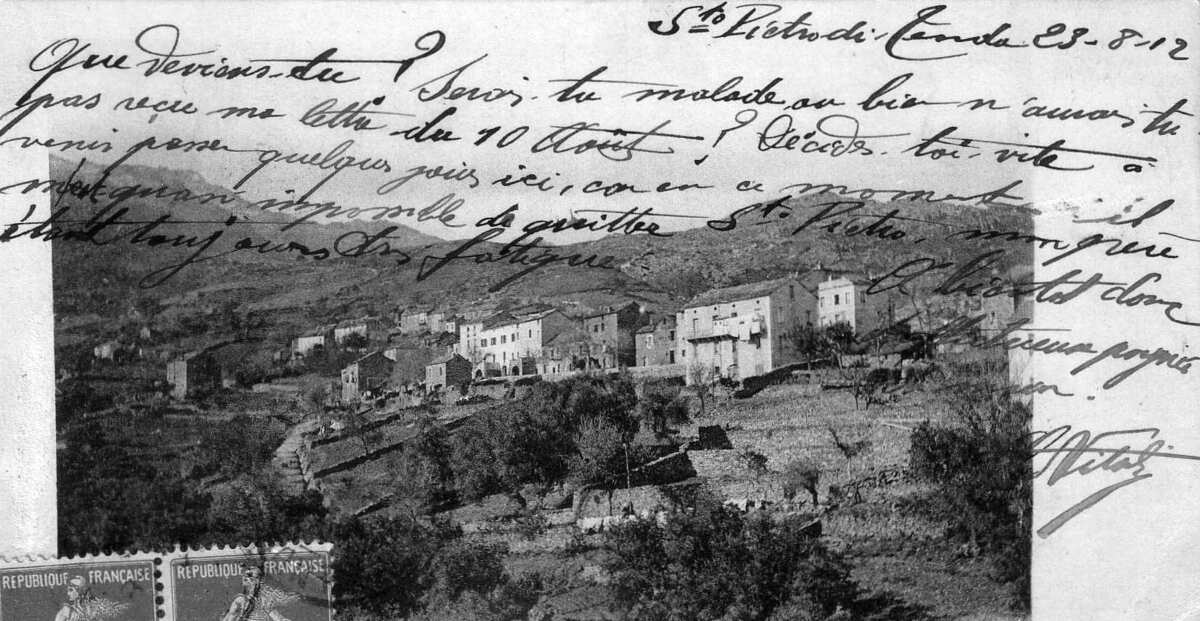 Sto Piétro di Tenda 23-8-12
Que deviens-tu ? Serais-tu malade ou bien n'aurais tu
pas reçu ma lettre du 10 Août ? Décides-toi vite à
venir passer quelques jours ici, car en ce moment il
m'est quasi impossible de quitter Sto Piétro, mon père
étant toujours très fatigué.
A bientôt donc
affectueuse poignée
main.
Vitali
REPUBLIQUE FRANÇAISE
REPUBLIQUE FRANÇAISE